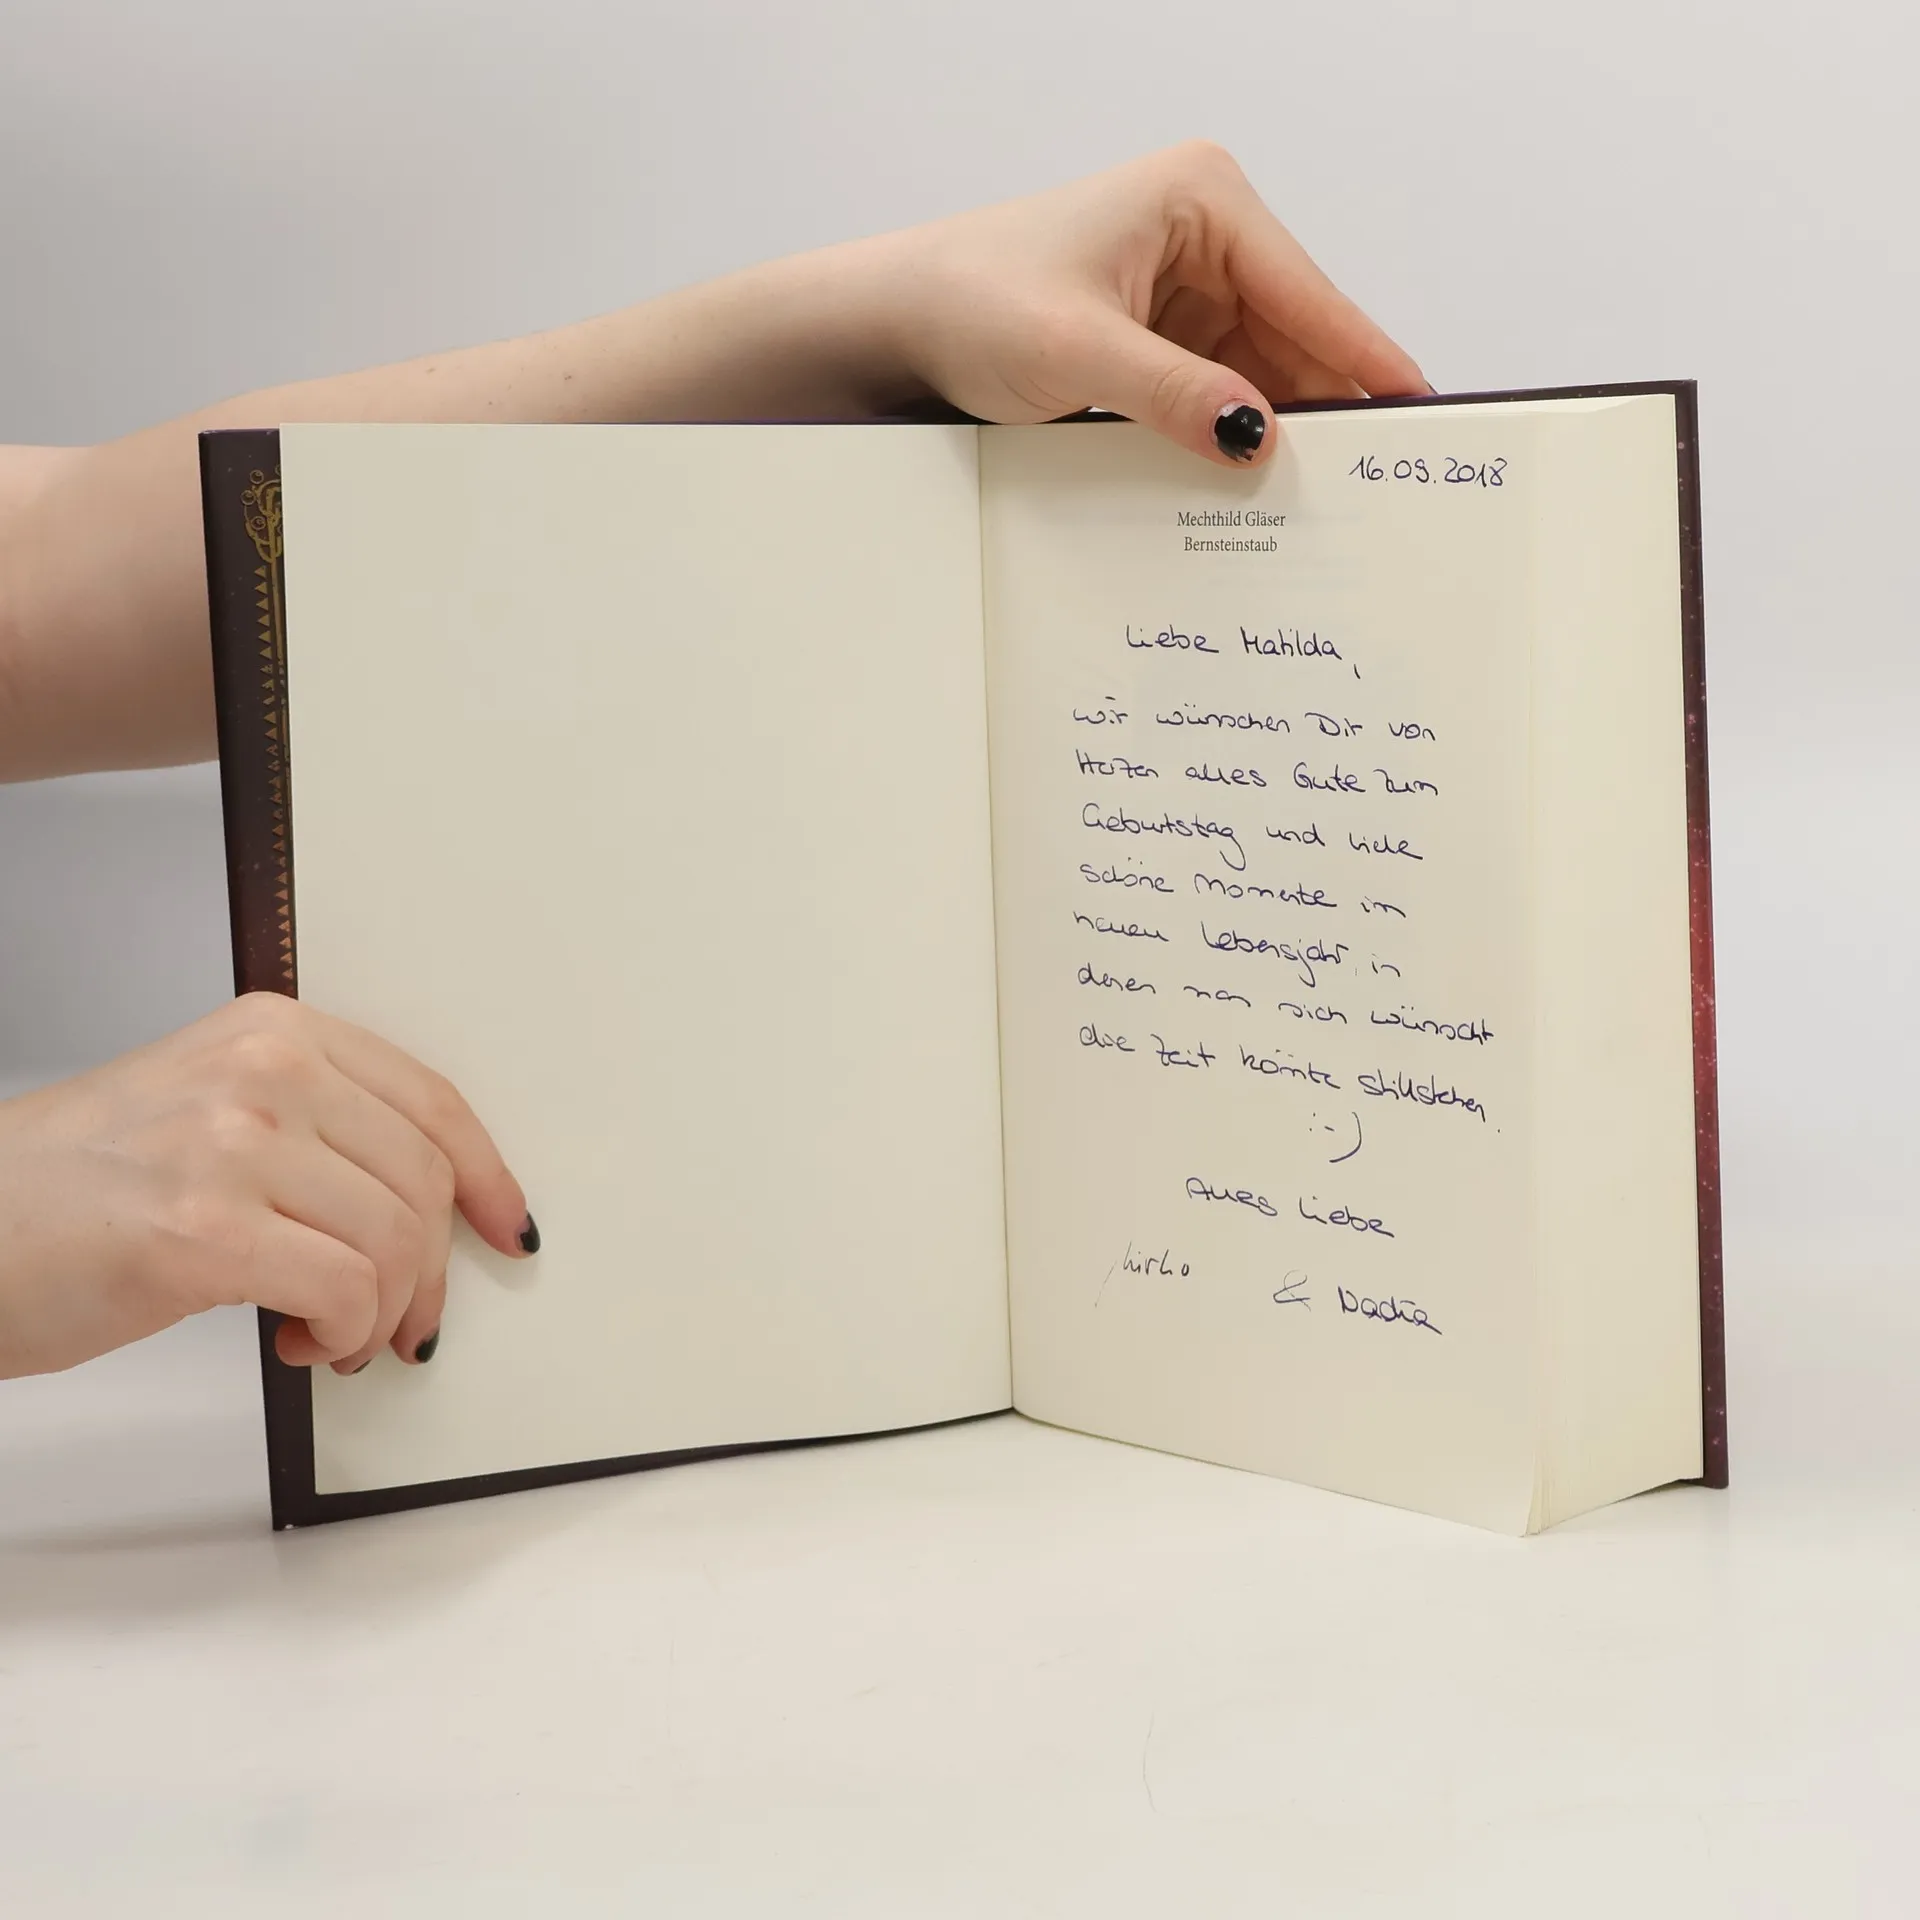 16.09.2018
Mechthild Gläser
Bernsteinstaub
Liebe Matilda,
wir wünschen Dir von
Herzen alles Gute zum
Geburtstag und viele
schöne Momente im
neuen Lebensjahr, in
denen man sich wünscht
die Zeit könnte stillstehen.
:-)
Alles Liebe
Mirko & Nadia